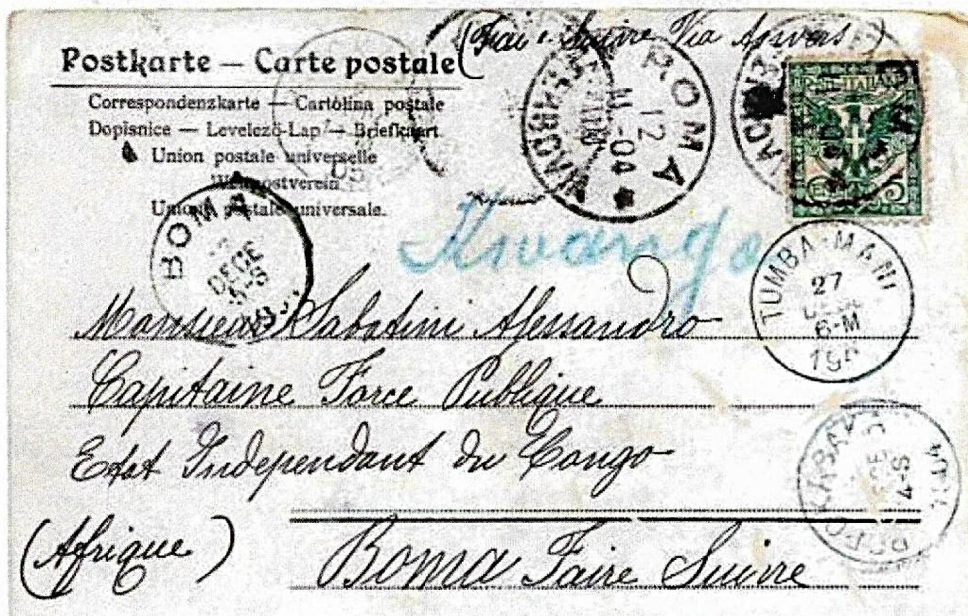 (Faire Suivre Via Anvers)
Postkarte – Carte postale
Correspondenzkarte – Cartolina postale
Dopisnice – Levelező-Lap – Briefkaart
Union postale universelle
Weltpostverein
Unione postale universale.
ROMA
12
11-04
POSTE ITALIANE
5
BOMA
DECE
Kwango
TUMBA-MANI
27
DECE
6-M
190
Monsieur Sabatini Alessandro
Capitaine Force Publique
Etat Independant du Congo
(Afrique)
Boma Faire Suivre
POPOKABAKA